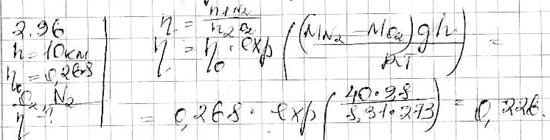 2.96
h = 10км
η₀ = 0,268
O₂, N₂
η - ?
η = n₁N₂ / n₂O₂
η = η₀ · exp((M_N₂ - M_O₂)gh / RT) =
= 0,268 · exp(40·98 / 8,31·273) = 0,226.